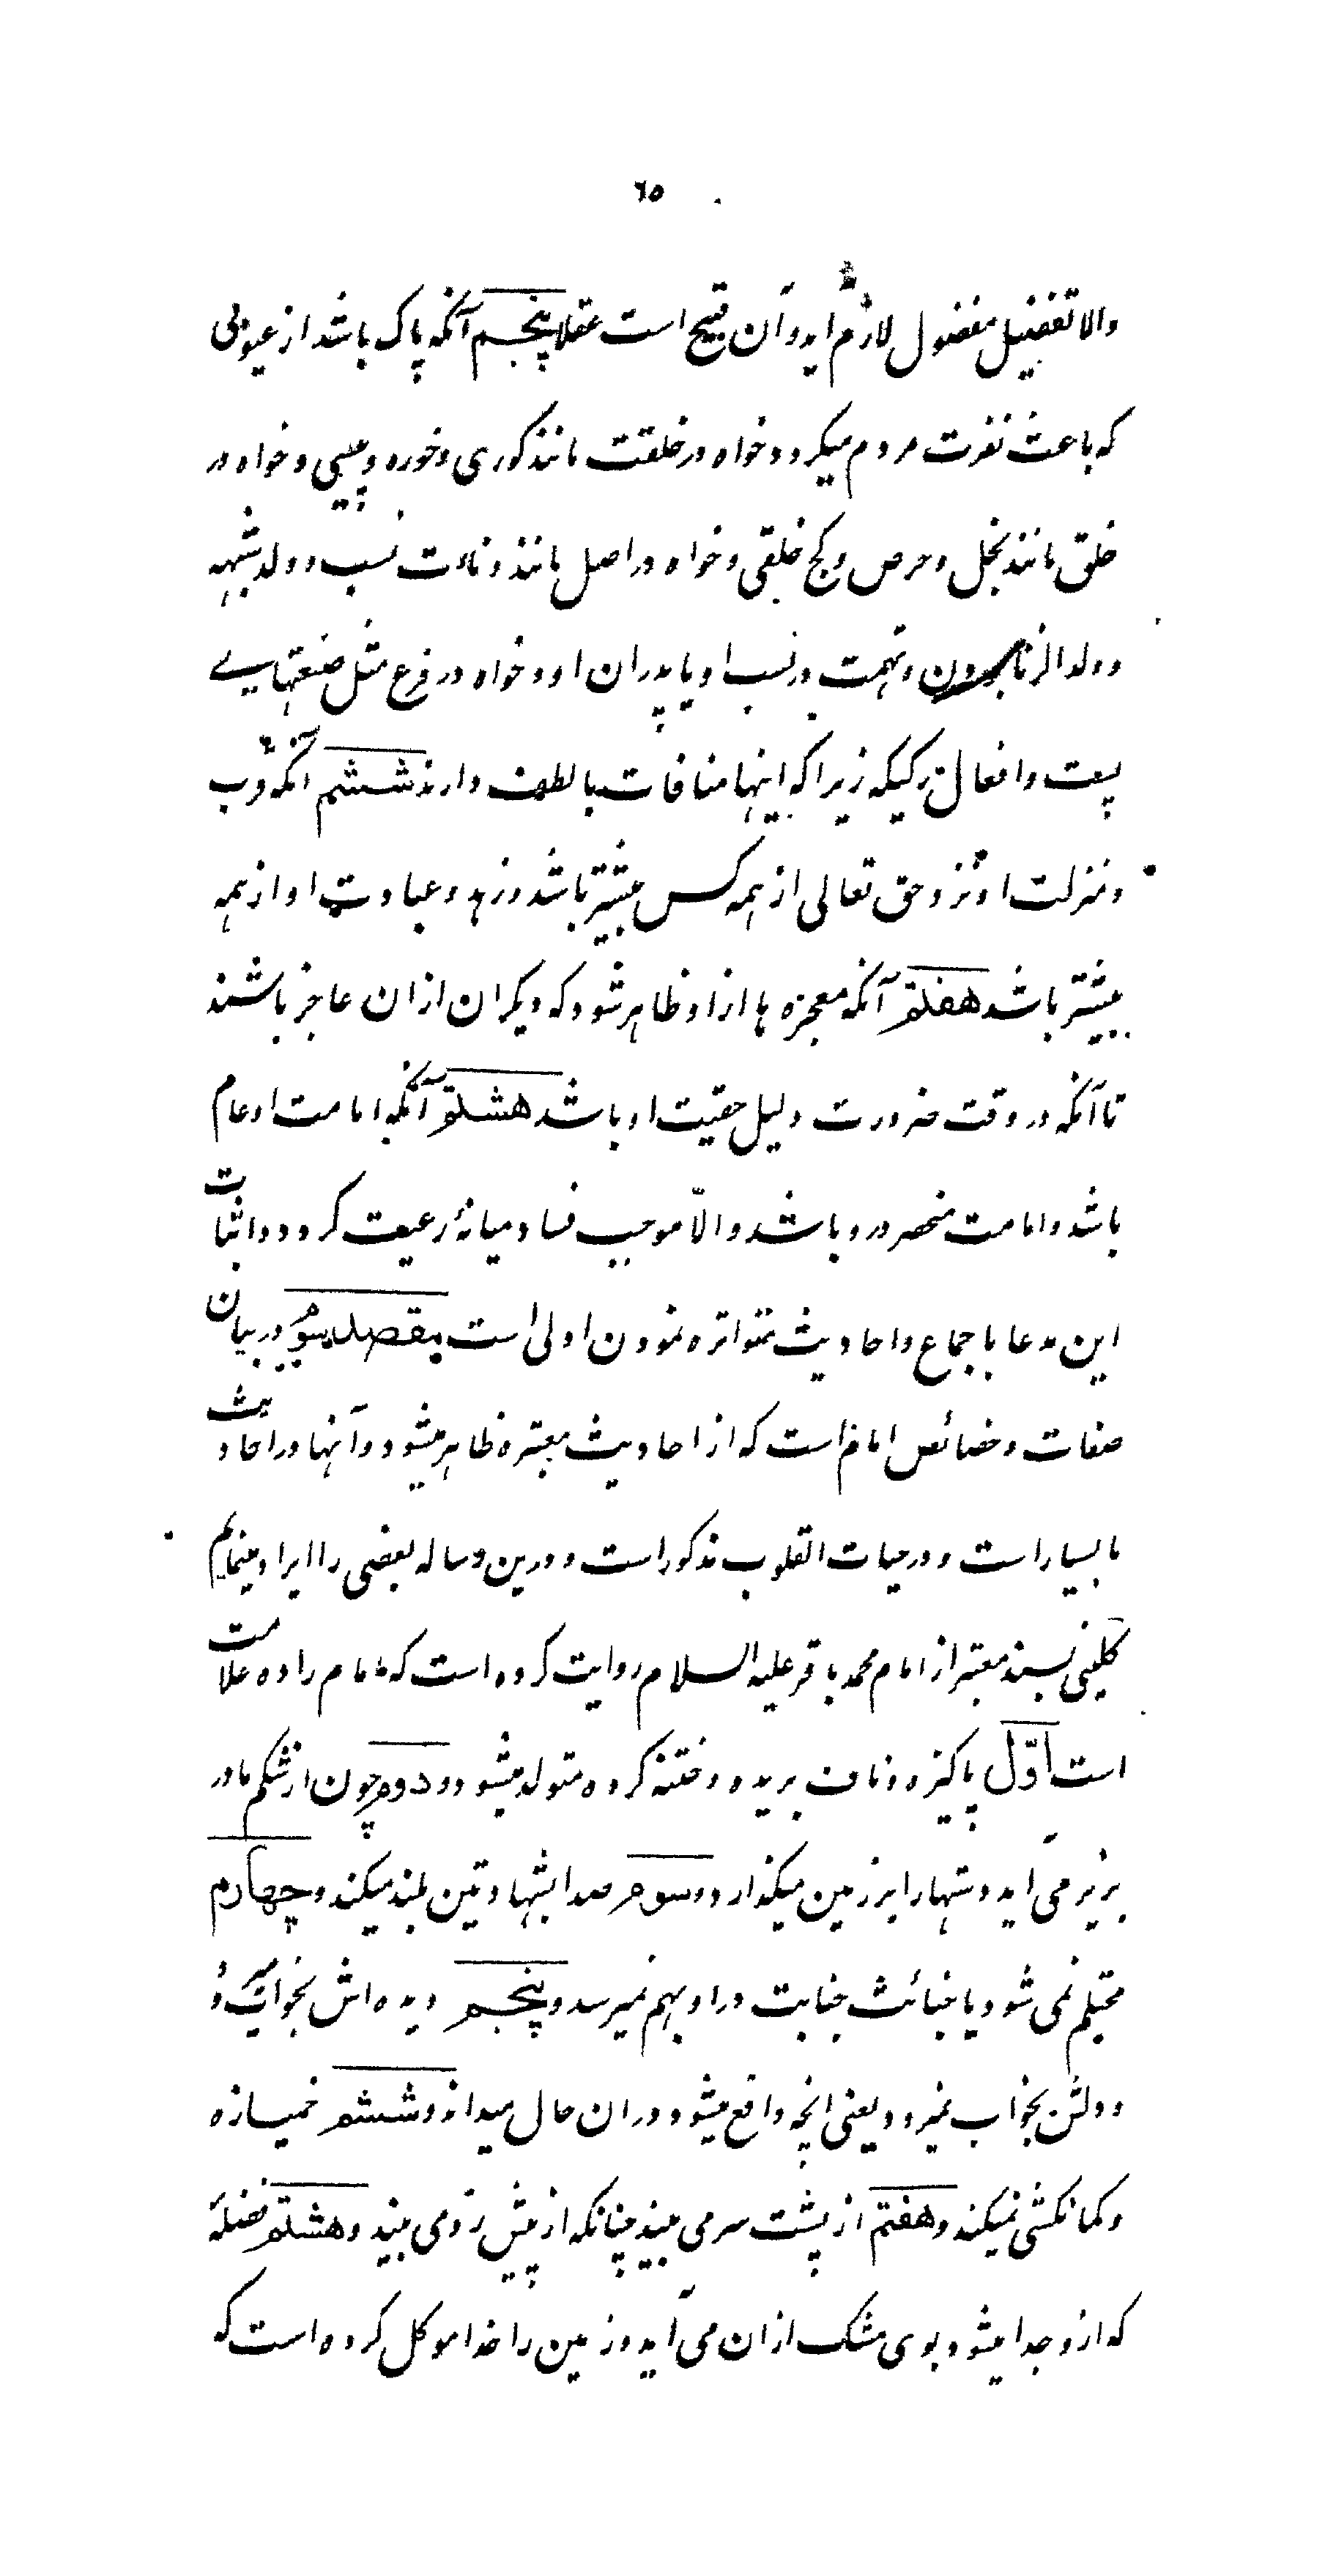 ٦٥
والا تفضیل مفضول لازم اید و آن قبیح است عقلا پنجم آنکه پاک باشد از عیوبی
که باعث نفرت مردم میکردد خواه در خلقت مانند کوری و خوره و پیسی و خواه در
خلق مانند بخل و حرص و کج خلقی و خواه در اصل مانند دنائت نسب و ولد شبهه
و ولد الزنا بودن و تهمت در نسب او یا پدران او و خواه در فرع مثل صنعتهایے
پست و افعال رکیکه زیرا که اینها منافات با لطف دارند ششم آنکه قرب
و منزلت او نزد حق تعالی از همه کس بیشتر باشد و زهد و عبادت او از همه
بیشتر باشد هفتم آنکه معجزه ها از او ظاهر شود که دیکران از ان عاجز باشند
تا آنکه در وقت ضرورت دلیل حقیت او باشد هشتم آنکه امامت او عام
باشد و امامت منحصر در و باشد و الّا موجب فساد میانهٔ رعیت کردد و اثبات
این مدعا باجماع و احادیث متواتره نمودن اولی است مقصد سیوم در بیان
صفات و خصائص امام است که از احادیث معتبره ظاهر میشود و آنها در احادیث
ما بسیار است و در حیات القلوب مذکور است و درین رساله بعضی را ایراد مینمایم
کلینی بسند معتبر از امام محمد باقر علیه السلام روایت کرده است که امام را ده علامت
است اوّل پاکیزه و ناف بریده و ختنه کرده متولد میشود و دوم چون از شکم مادر
بزیر می آید دستها را بر زمین میکذارد و سوم صدا بشهادتین بلند میکند و چهارم
محتلم نمی شود یا خبائث جنابت در او بهم نمیرسد و پنجم دیده اش بخواب میرود
و دلش بخواب نمیرود یعنی انچه واقع میشود در ان حال میداند و ششم خمیازه
و کمانکشی نمیکند و هفتم از پشت سر می بیند چنانکه از پیش روی می بیند و هشتم فضلهٔ
که از و جدا میشود بوی مشک از ان می آید و زمین را خدا موکل کرده است که